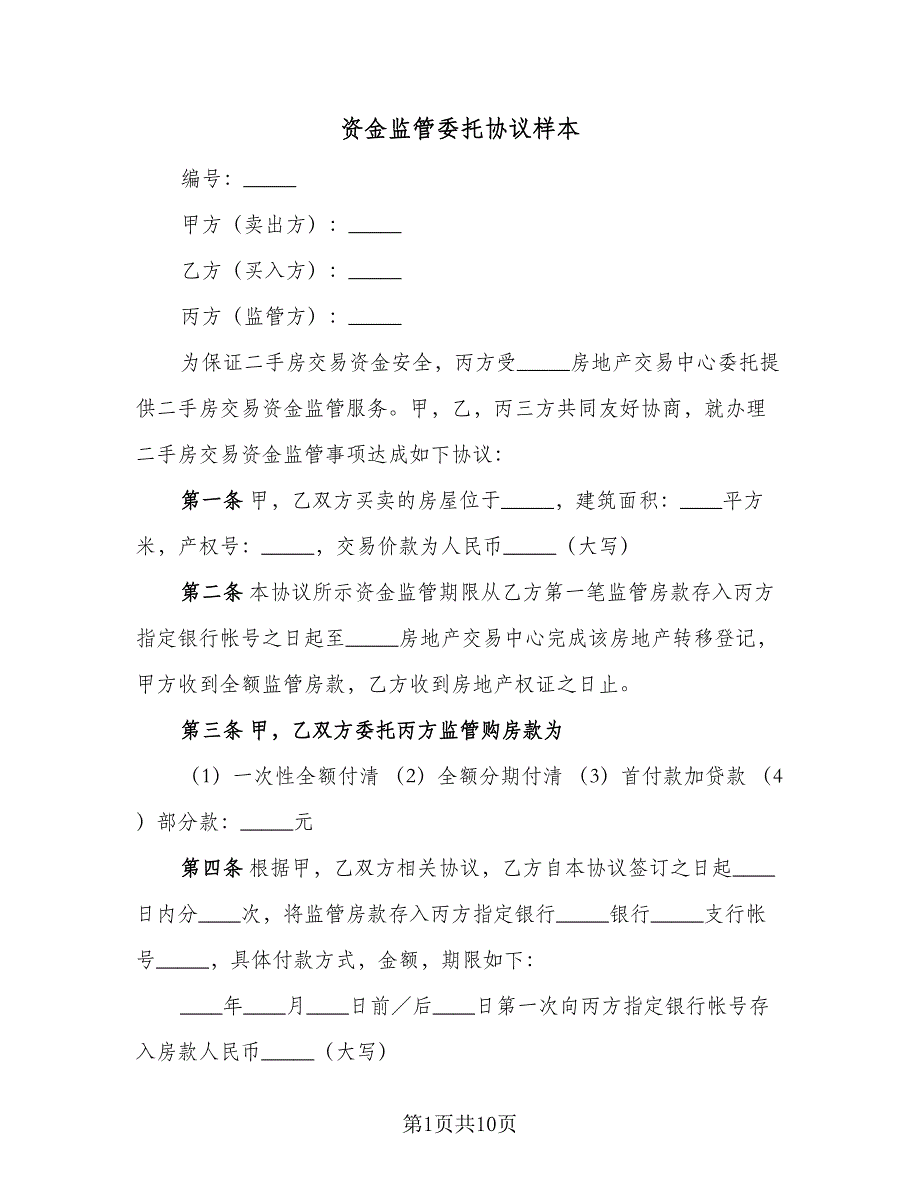 资金监管委托协议样本
编号：_____
甲方（卖出方）：_____
乙方（买入方）：_____
丙方（监管方）：_____
为保证二手房交易资金安全，丙方受_____房地产交易中心委托提
供二手房交易资金监管服务。甲，乙，丙三方共同友好协商，就办理
二手房交易资金监管事项达成如下协议：
第一条 甲，乙双方买卖的房屋位于_____，建筑面积：____平方
米，产权号：_____，交易价款为人民币_____（大写）
第二条 本协议所示资金监管期限从乙方第一笔监管房款存入丙方
指定银行帐号之日起至_____房地产交易中心完成该房地产转移登记，
甲方收到全额监管房款，乙方收到房地产权证之日止。
第三条 甲，乙双方委托丙方监管购房款为
（1）一次性全额付清 （2）全额分期付清 （3）首付款加贷款 （4
）部分款：_____元
第四条 根据甲，乙双方相关协议，乙方自本协议签订之日起____
日内分____次，将监管房款存入丙方指定银行_____银行_____支行帐
号_____，具体付款方式，金额，期限如下：
____年____月____日前／后____日第一次向丙方指定银行帐号存
入房款人民币_____（大写）
第1页共10页